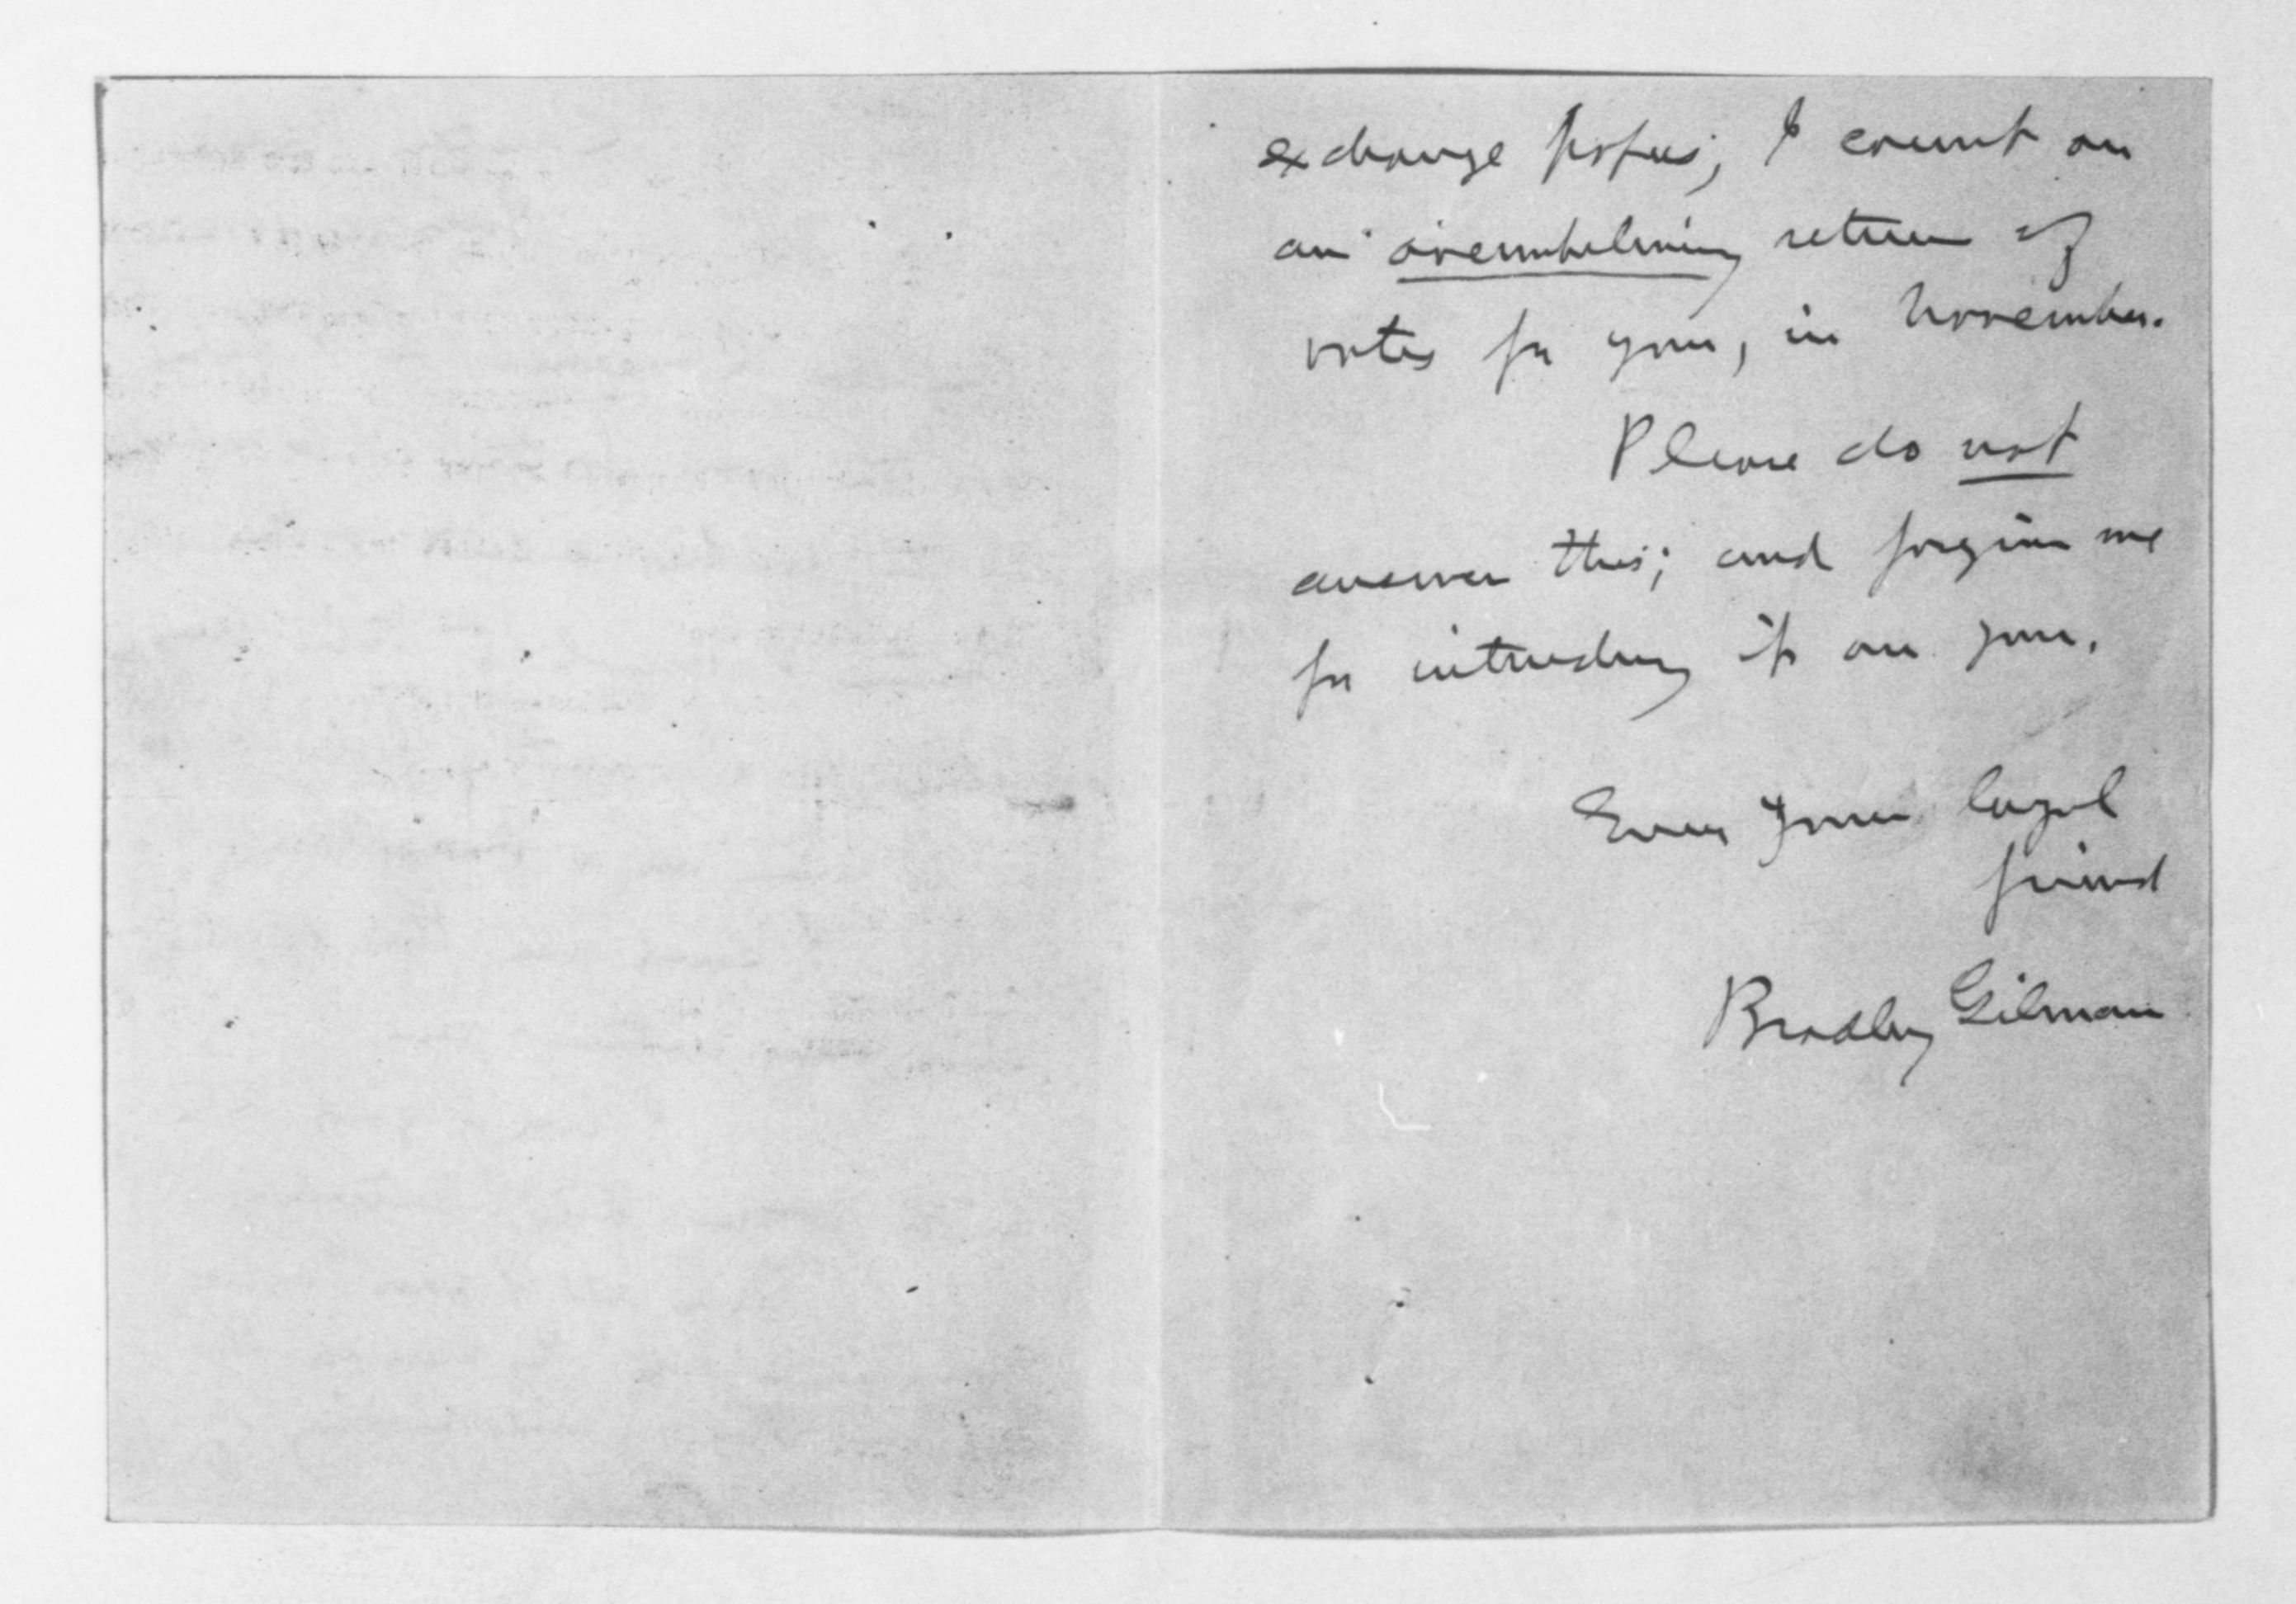 exchange papers, I count on
an overwhelming return of
votes for you, in November.
Please do not
answer this; and forgive me
for intruding it on you.
Ever your loyal
friend
Bradley Gilman